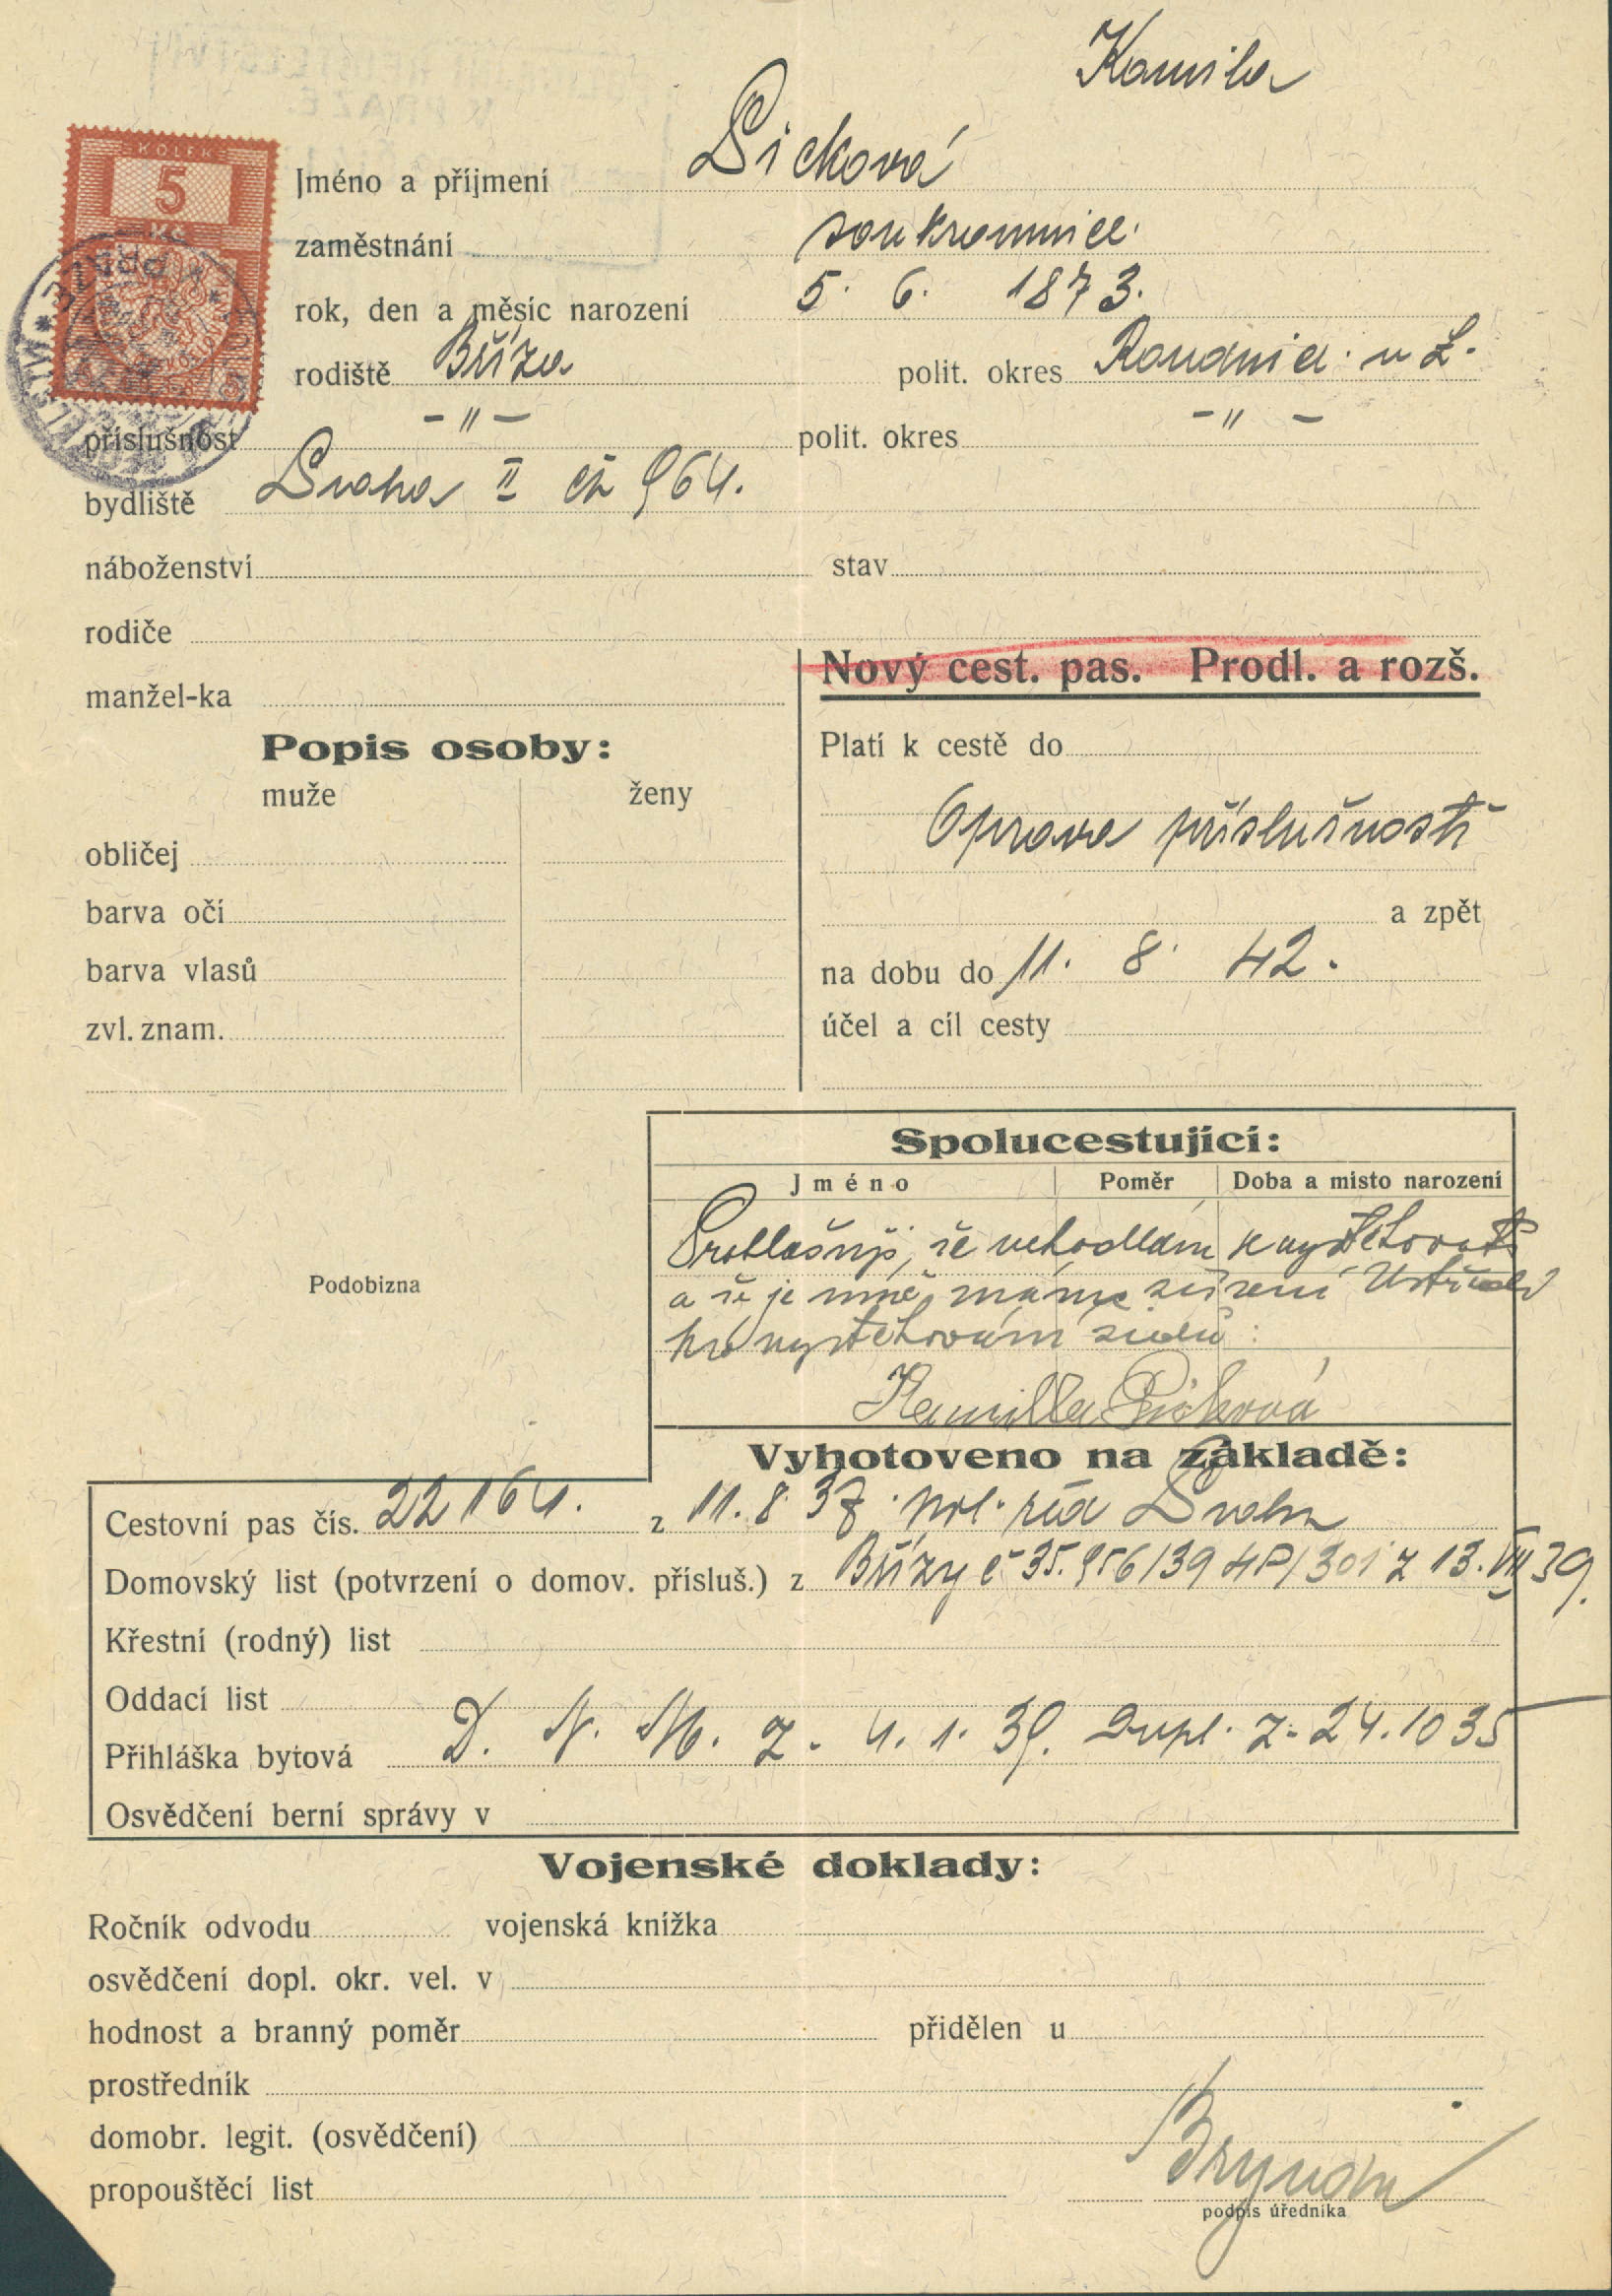 Kamila
KOLEK
5
Kč
Jméno a příjmení Picková
zaměstnání soukromnice
rok, den a měsíc narození 5. 6. 1873.
rodiště Bříza polit. okres Roudnice n L.
příslušnost -"- polit. okres -"-
bydliště Praha II čp 964.
náboženství stav
rodiče
Nový cest. pas. Prodl. a rozš.
manžel-ka
Popis osoby: Platí k cestě do
muže ženy
Oprava příslušnosti
obličej
barva očí a zpět
barva vlasů na dobu do 11. 8. 42.
zvl. znam. účel a cíl cesty
Spolucestující:
Jméno Poměr Doba a místo narození
Prohlašuji, že nehodlám se vystěhovati
Podobizna
a že je mně známo zřízení Ústředí
pro vystěhování židů:
Kamilla Picková
Vyhotoveno na základě:
Cestovní pas čís. 22164. z 11. 8. 37. pol. řed Praha
Domovský list (potvrzení o domov. přísluš.) z Břízy č 35.956/39 4P/301 z 13. VII 39.
Křestní (rodný) list
Oddací list
Přihláška bytová D. N. M. z. 4. 1. 39. Dupl. z. 24. 10 35
Osvědčení berní správy v
Vojenské doklady:
Ročník odvodu vojenská knížka
osvědčení dopl. okr. vel. v
hodnost a branný poměr přidělen u
prostředník
domobr. legit. (osvědčení)
propouštěcí list
podpis úředníka